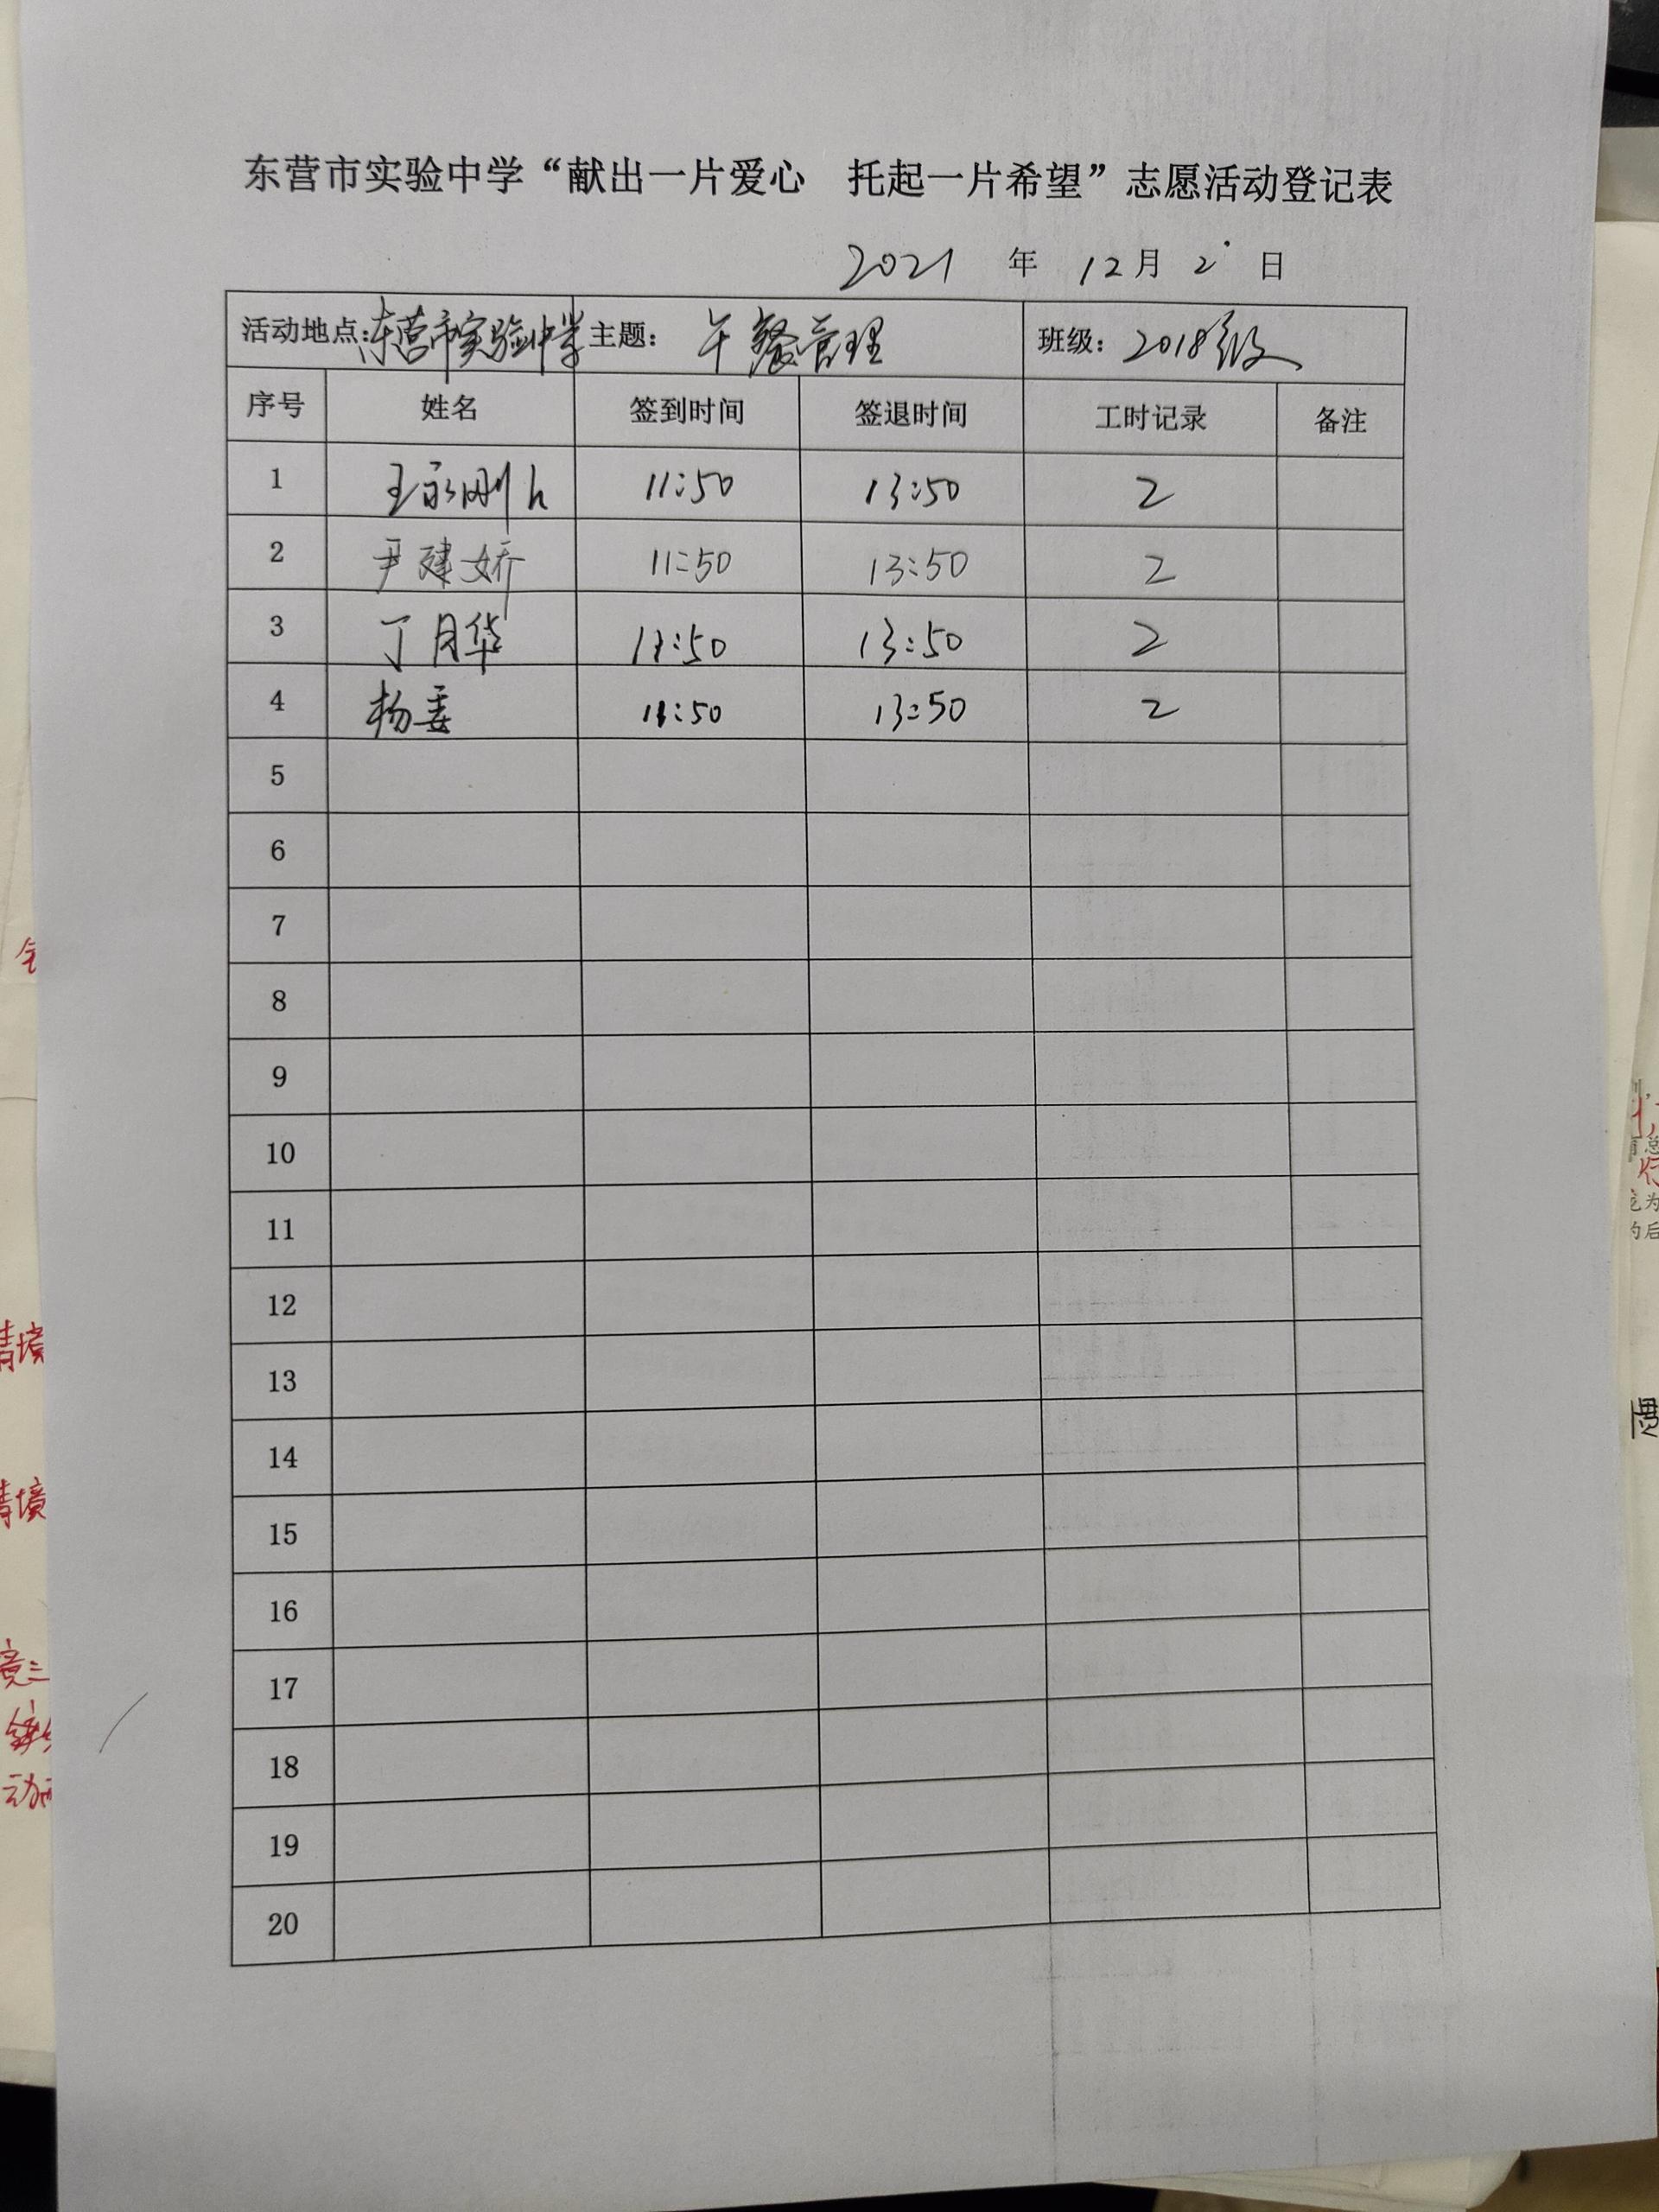 东营市实验中学“献出一片爱心 托起一片希望”志愿活动登记表
2021 年 12月 2 日
活动地点:东营市实验中学 主题: 午餐管理 班级: 2018级
序号 姓名 签到时间 签退时间 工时记录 备注
1 王永刚 11:50 13:50 2
2 尹建娇 11:50 13:50 2
3 丁月华 11:50 13:50 2
4 杨委 11:50 13:50 2
5
6
7
8
9
10
11
12
13
14
15
16
17
18
19
20
情境
情境